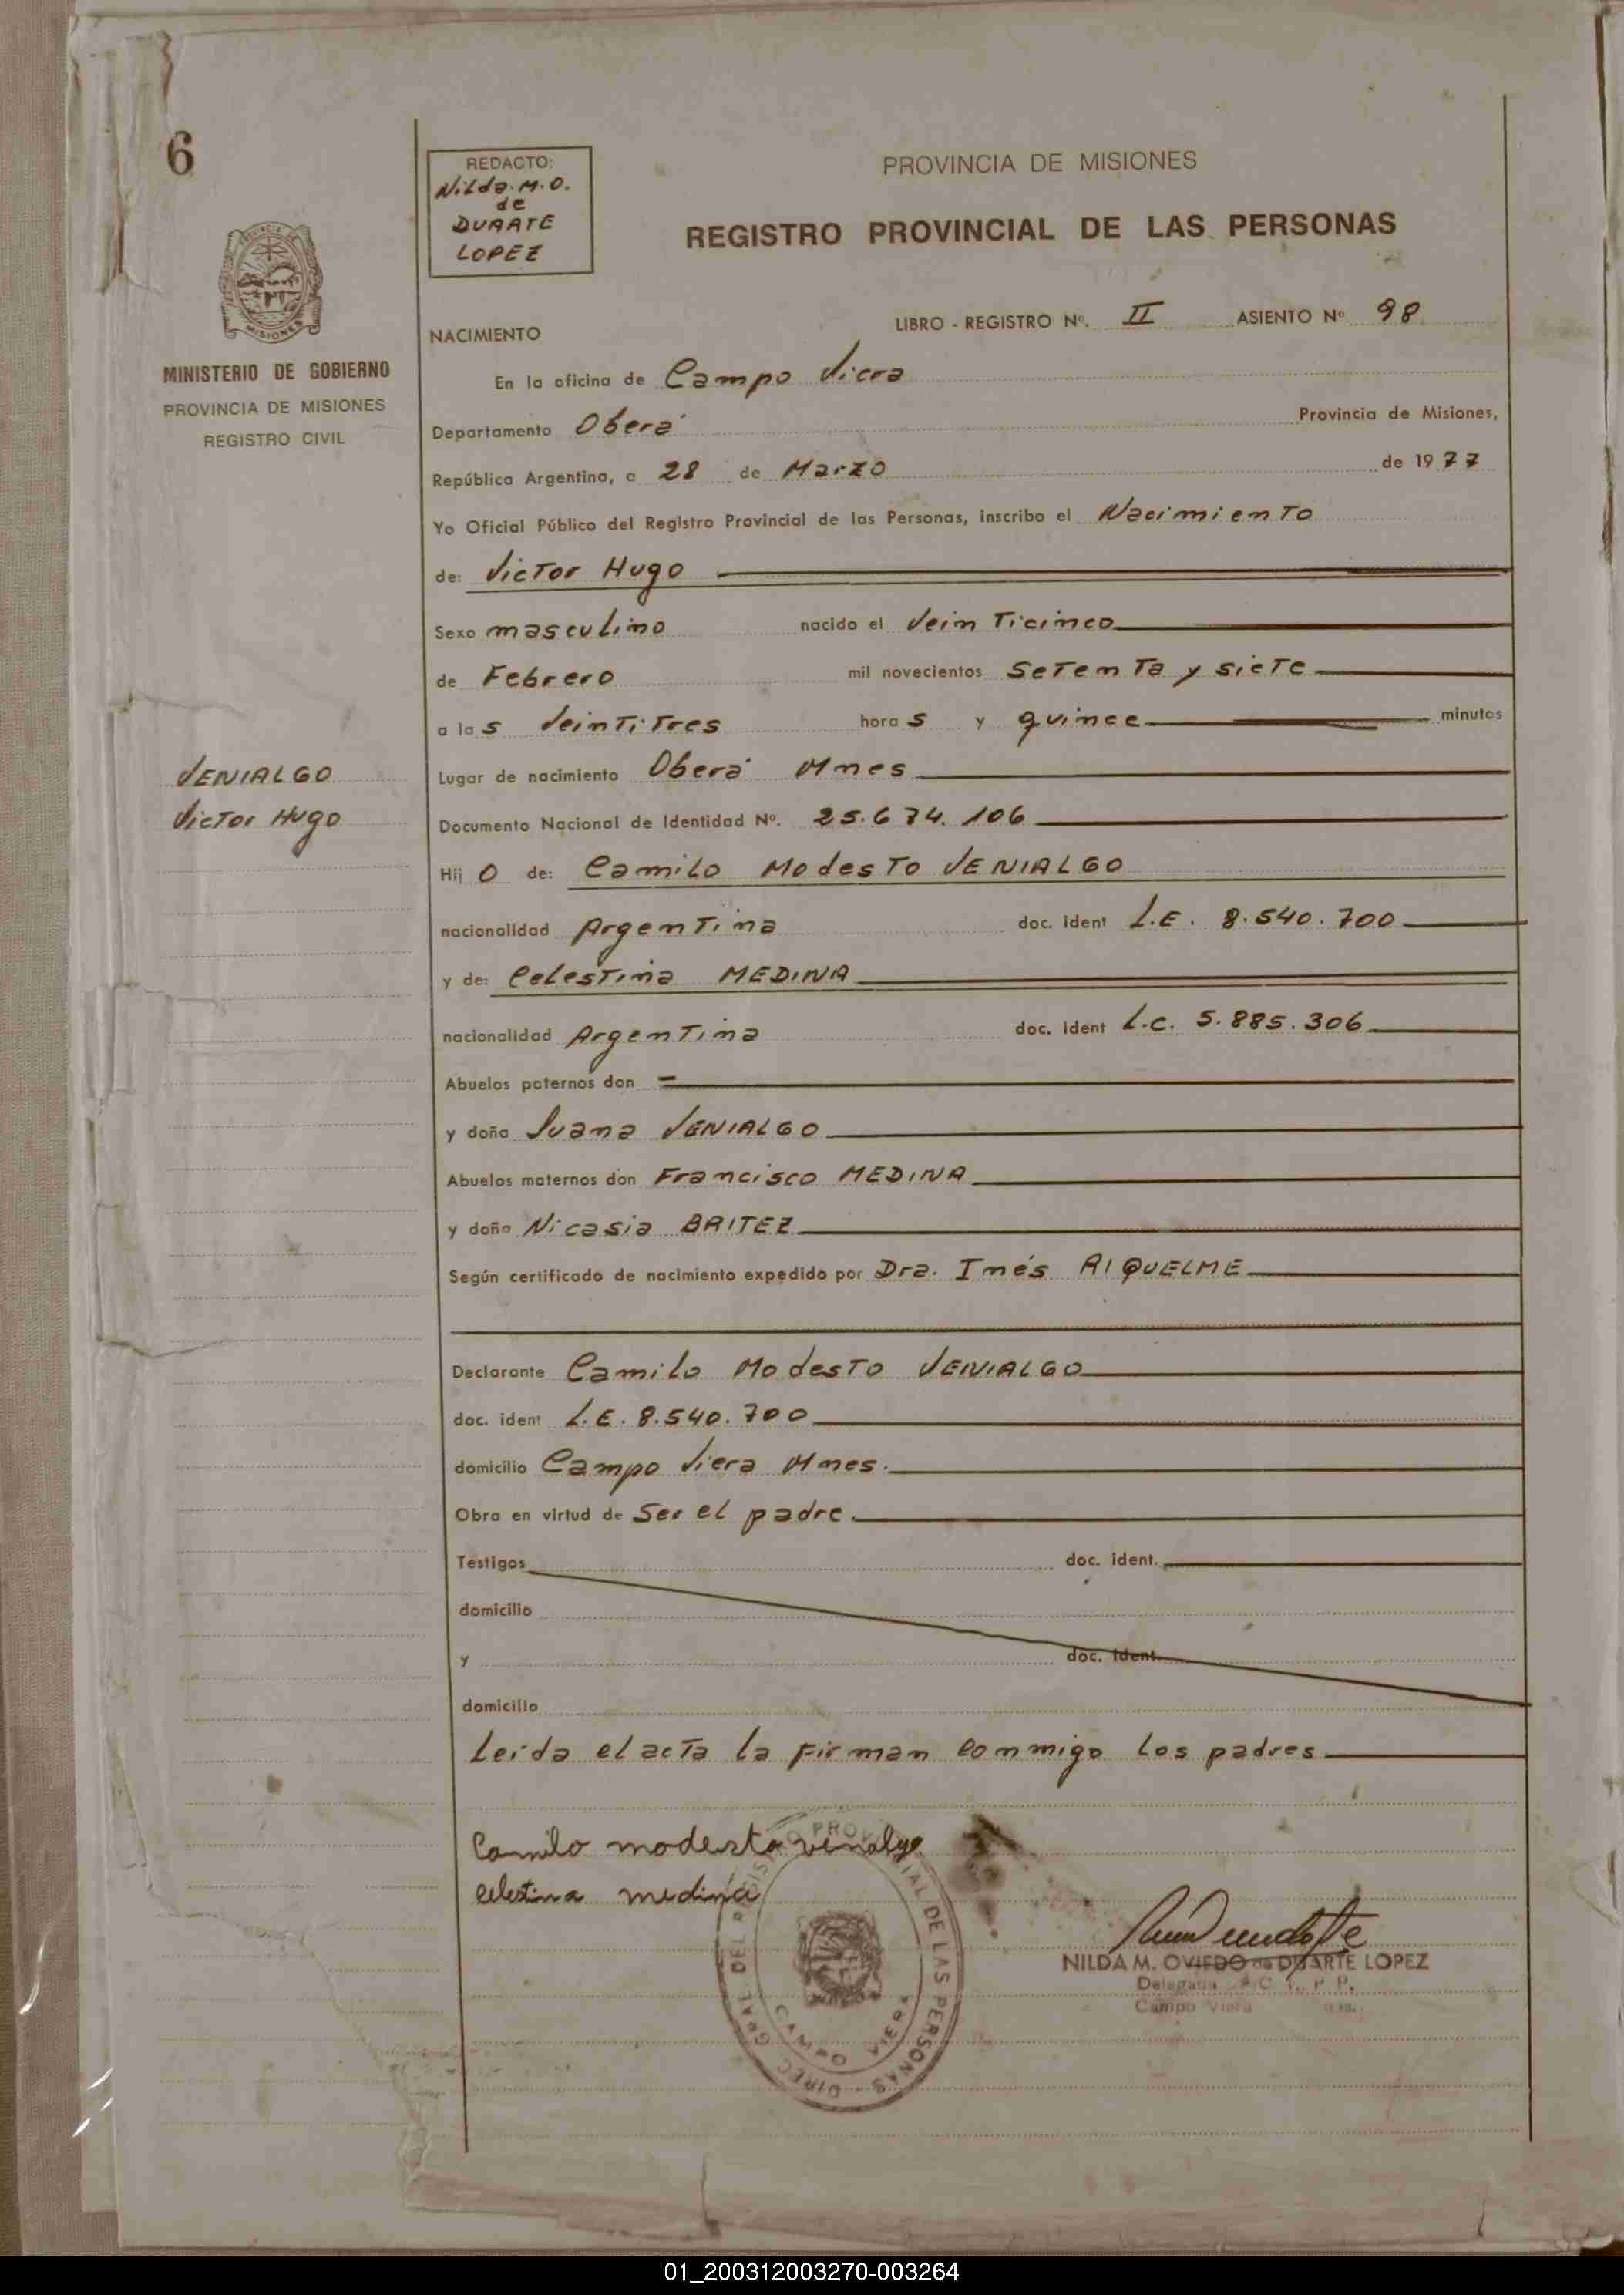 6
REDACTO:
Nilda. M. O.
de
DUARTE
LOPEZ
PROVINCIA DE MISIONES
REGISTRO PROVINCIAL DE LAS PERSONAS
MINISTERIO DE GOBIERNO
PROVINCIA DE MISIONES
REGISTRO CIVIL
NACIMIENTO
LIBRO - REGISTRO Nº. II ASIENTO Nº 98
En la oficina de Campo Viera
Departamento Oberá Provincia de Misiones,
República Argentina, a 28 de Marzo de 1977
Yo Oficial Público del Registro Provincial de las Personas, inscribo el Nacimiento
de: Victor Hugo
Sexo masculino nacido el Veinticinco
de Febrero mil novecientos setenta y siete
a las Veintitres horas y quince minutos
VENIALGO
Victor Hugo
Lugar de nacimiento Oberá Mnes
Documento Nacional de Identidad Nº. 25.674.106
Hijo de: Camilo Modesto VENIALGO
nacionalidad Argentina doc. ident L.E. 8.540.700
y de: Celestina MEDINA
nacionalidad Argentina doc. ident L.C. 5.885.306
Abuelos paternos don —
y doña Juana VENIALGO
Abuelos maternos don Francisco MEDINA
y doña Nicasia BRITEZ
Según certificado de nacimiento expedido por Dra. Inés RIQUELME
Declarante Camilo Modesto VENIALGO
doc. ident L.E. 8.540.700
domicilio Campo Viera Mnes.
Obra en virtud de Ser el padre.
Testigos doc. ident.
domicilio
y doc. ident.
domicilio
Leida el acta la firman conmigo los padres
Camilo modesto venialgo
celestina medina
DIREC. GRAL DEL REGISTRO PROVINCIAL DE LAS PERSONAS
CAMPO VIERA
NILDA M. OVIEDO de DUARTE LOPEZ
Delegada
Campo Viera
01_200312003270-003264